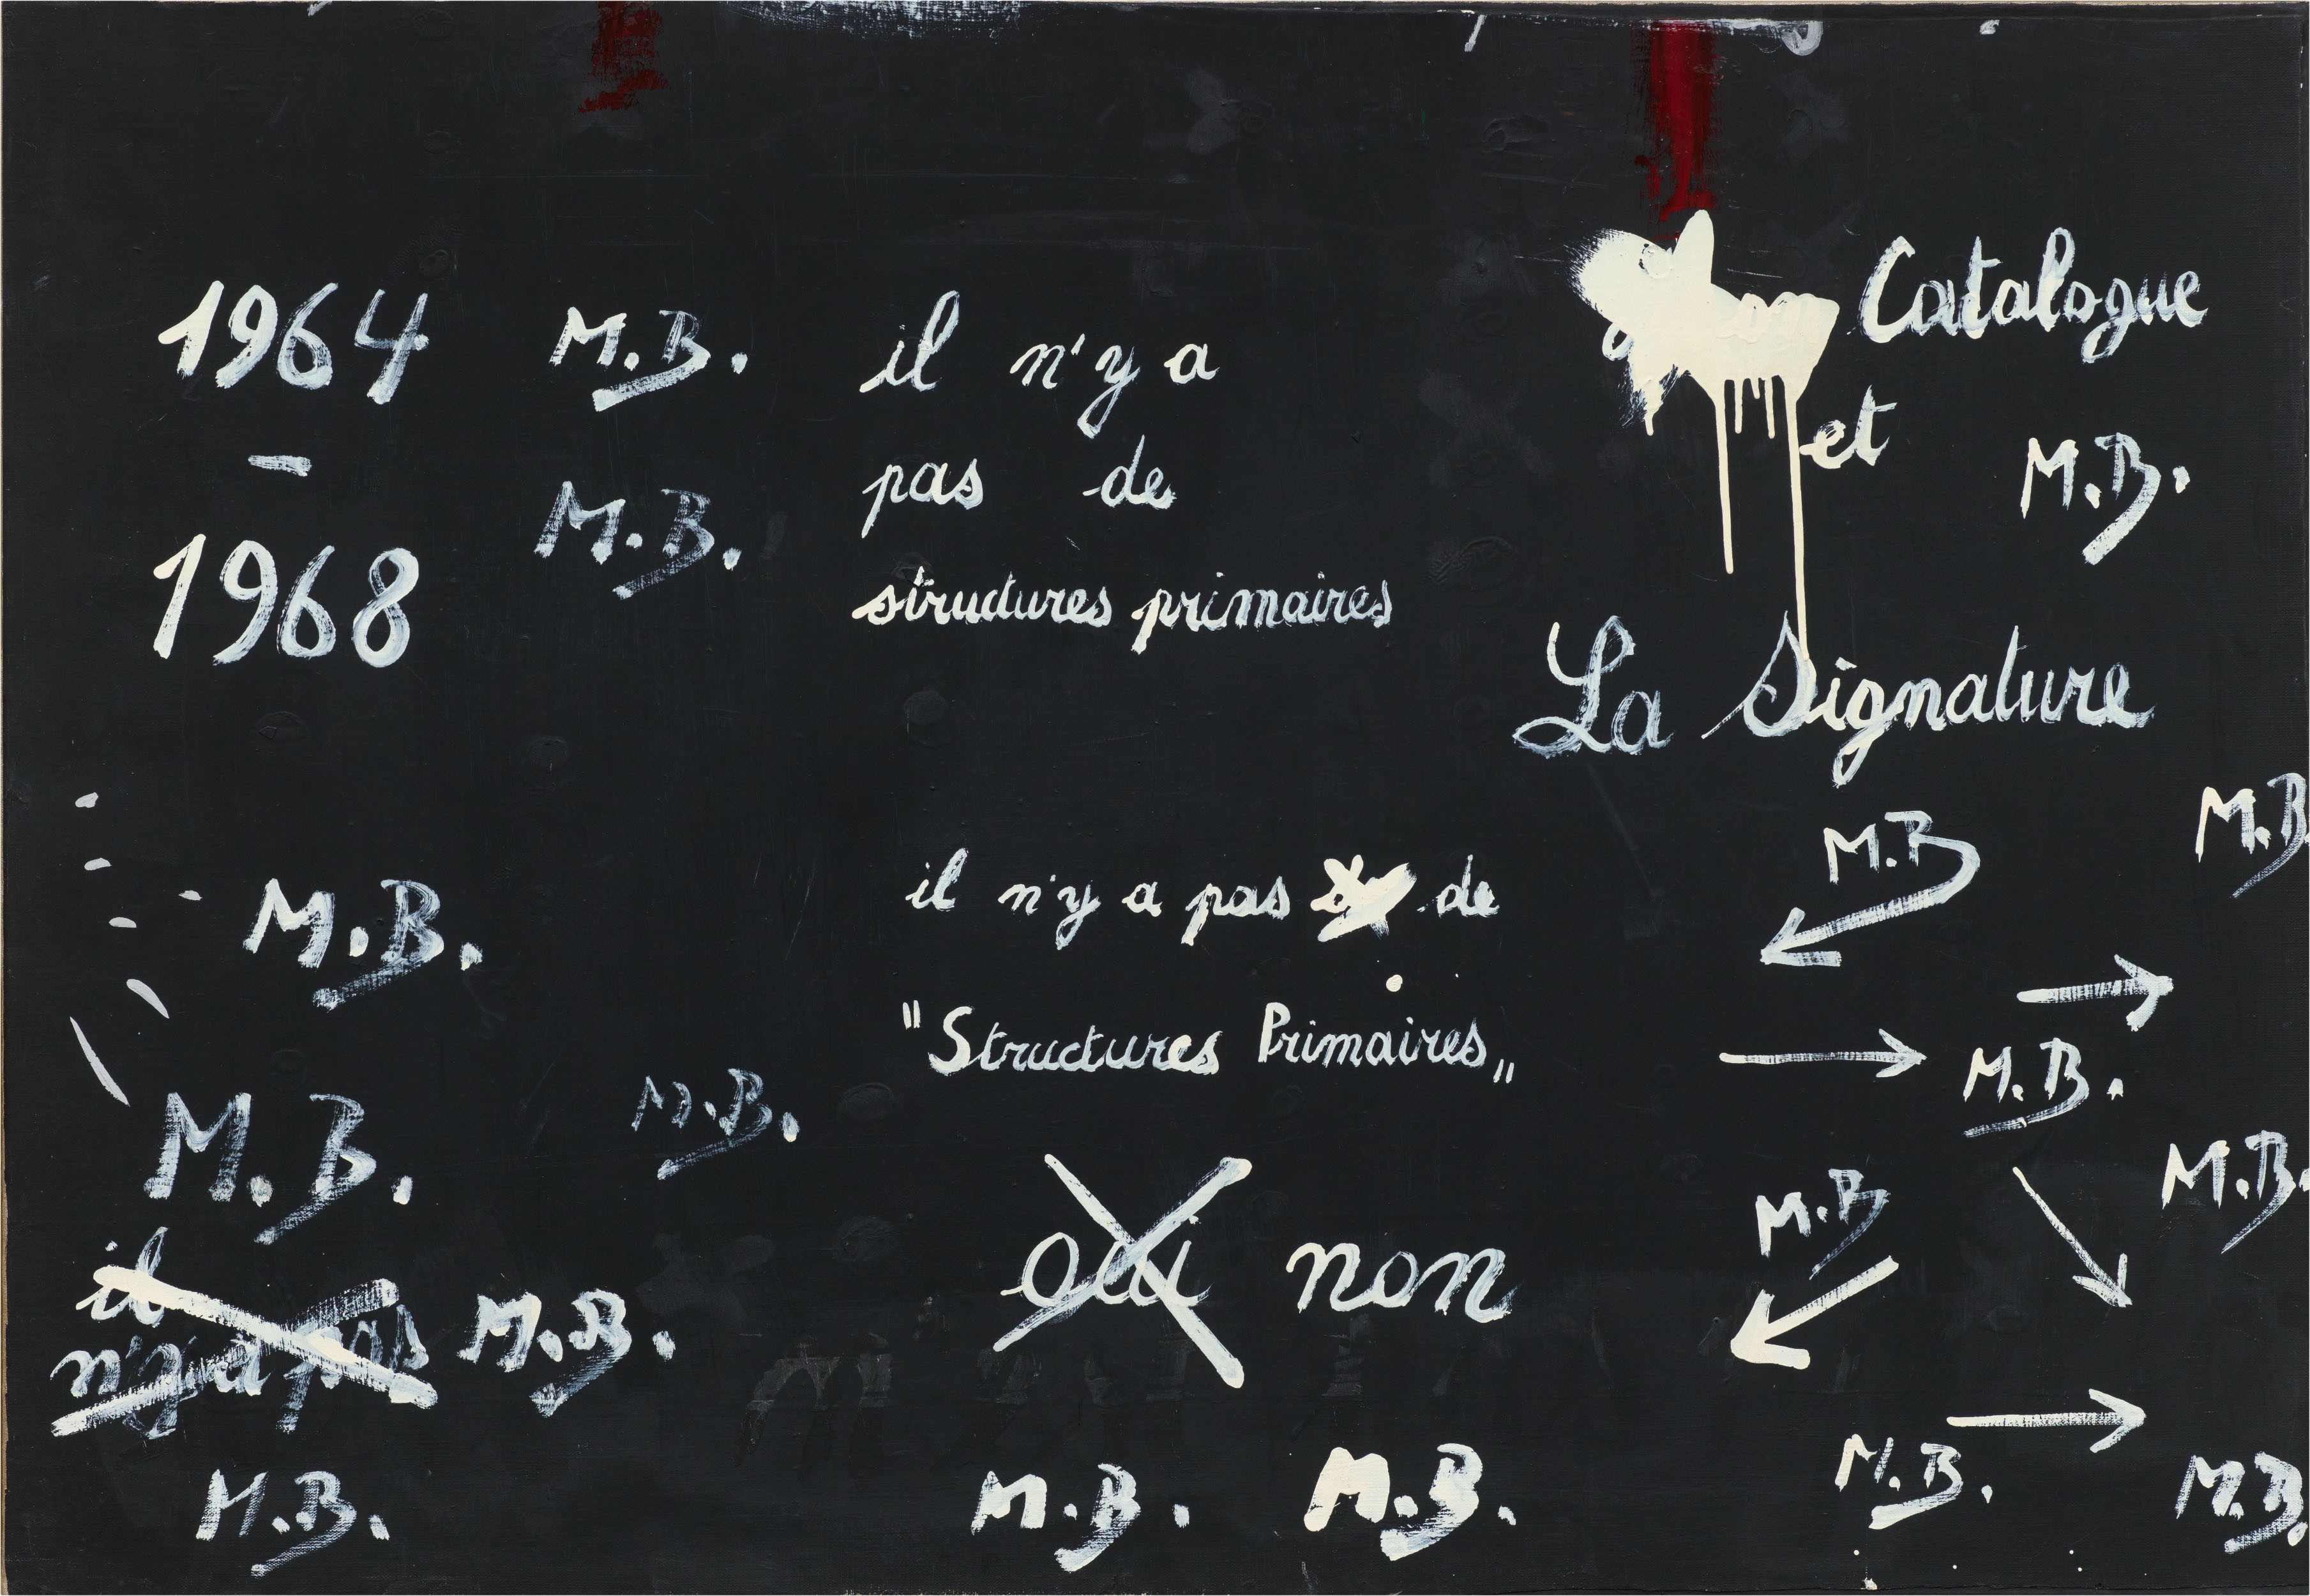 1964
–
1968
M.B.
M.B.
il n'y a
pas de
structures primaires
Catalogue
et
M.B.
La Signature
M.B.
M.B.
M.B.
il
n'y a pas
M.B.
M.B.
il n'y a pas de
"Structures Primaires„
oui non
M.B.
M.B.
M.B
M.B
→
→
M.B.
M.B
M.B.
→
M.B.
M.B.